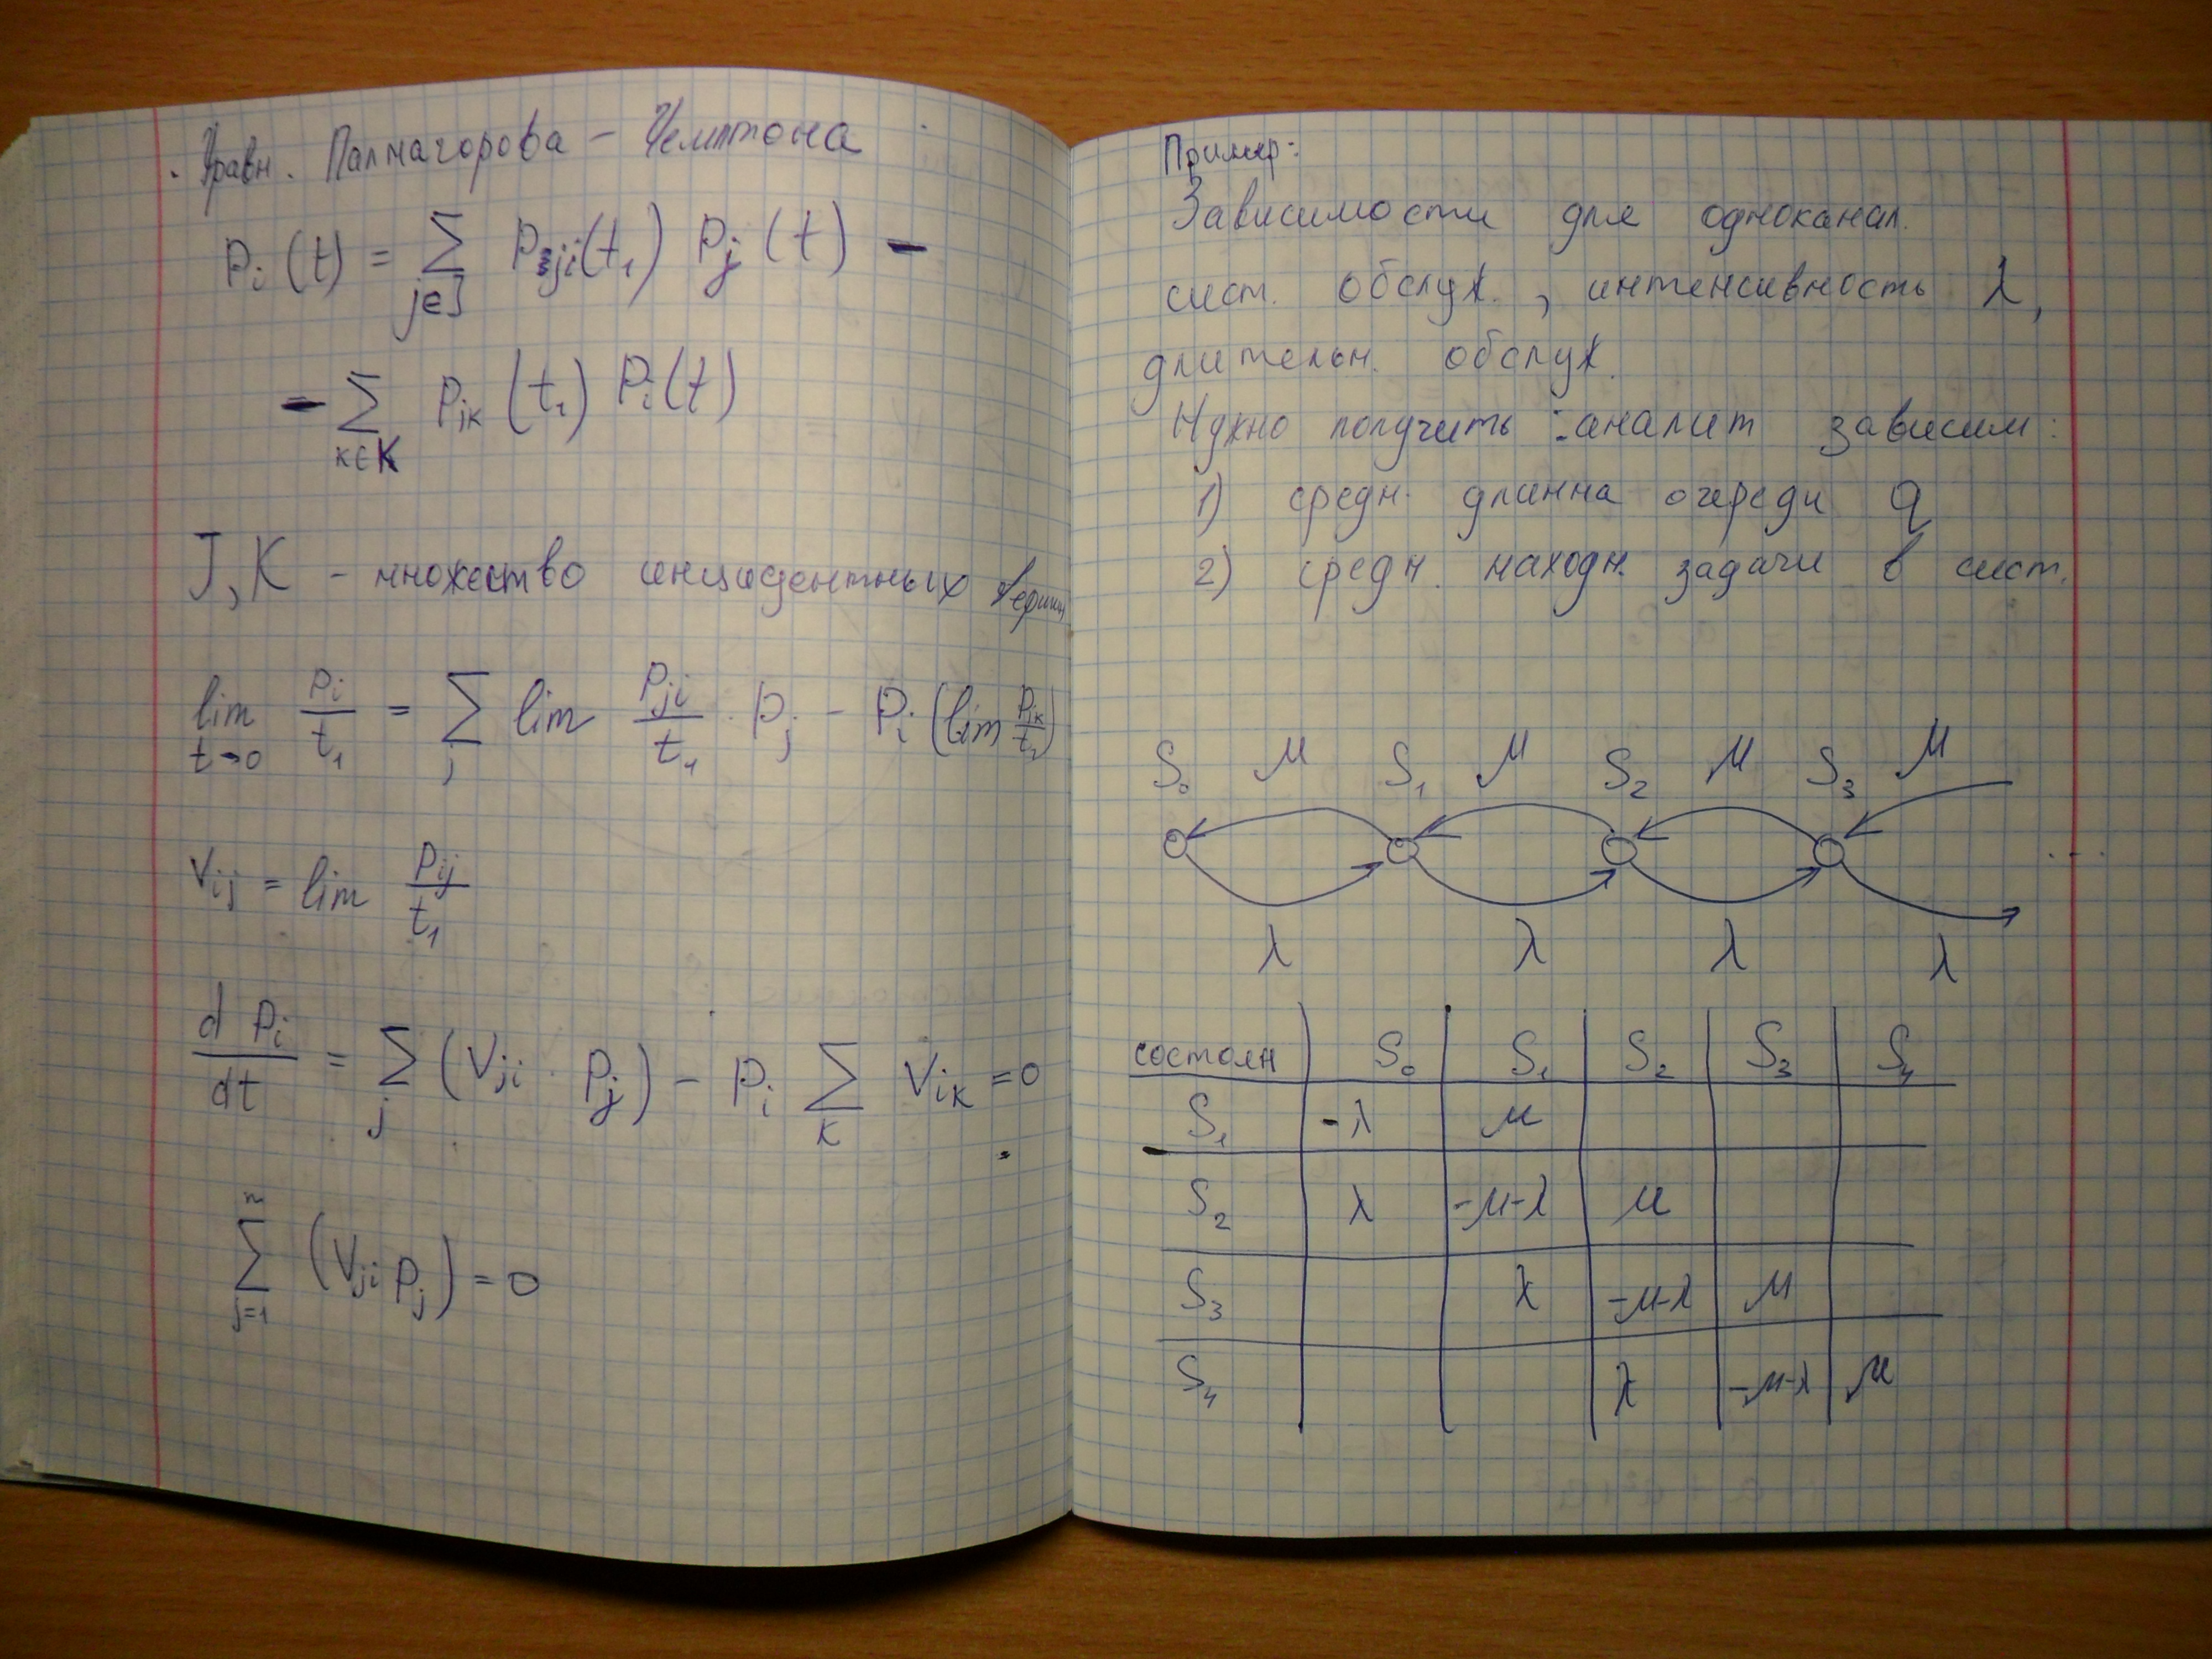 Уравн. Палмагорова – Чемптона
Pi (t) = ∑ Pji(t1) Pj (t) –
j∈J
– ∑ Pik (t1) Pi(t)
k∈K
J, K – множество инцидентных вершин
lim Pi/t1 = ∑ lim Pji/t1 · Pj – Pi (lim Pik/t1)
t→0 j
Vij = lim Pij/t1
d Pi/dt = ∑ (Vji · Pj) – Pi ∑ Vik = 0
j k
n
∑ (Vji Pj) = 0
j=1
Пример:
Зависимости для одноканал.
сист. обслуж. , интенсивность λ,
длительн. обслуж.
Нужно получить : аналит зависим :
1) средн. длинна очереди q
2) средн. находн. задачи в сист.
S0 μ S1 μ S2 μ S3 μ
...
λ λ λ λ
состоян S0 S1 S2 S3 S4
S1 -λ μ
S2 λ -μ-λ μ
S3 λ -μ-λ μ
S4 λ -μ-λ μ